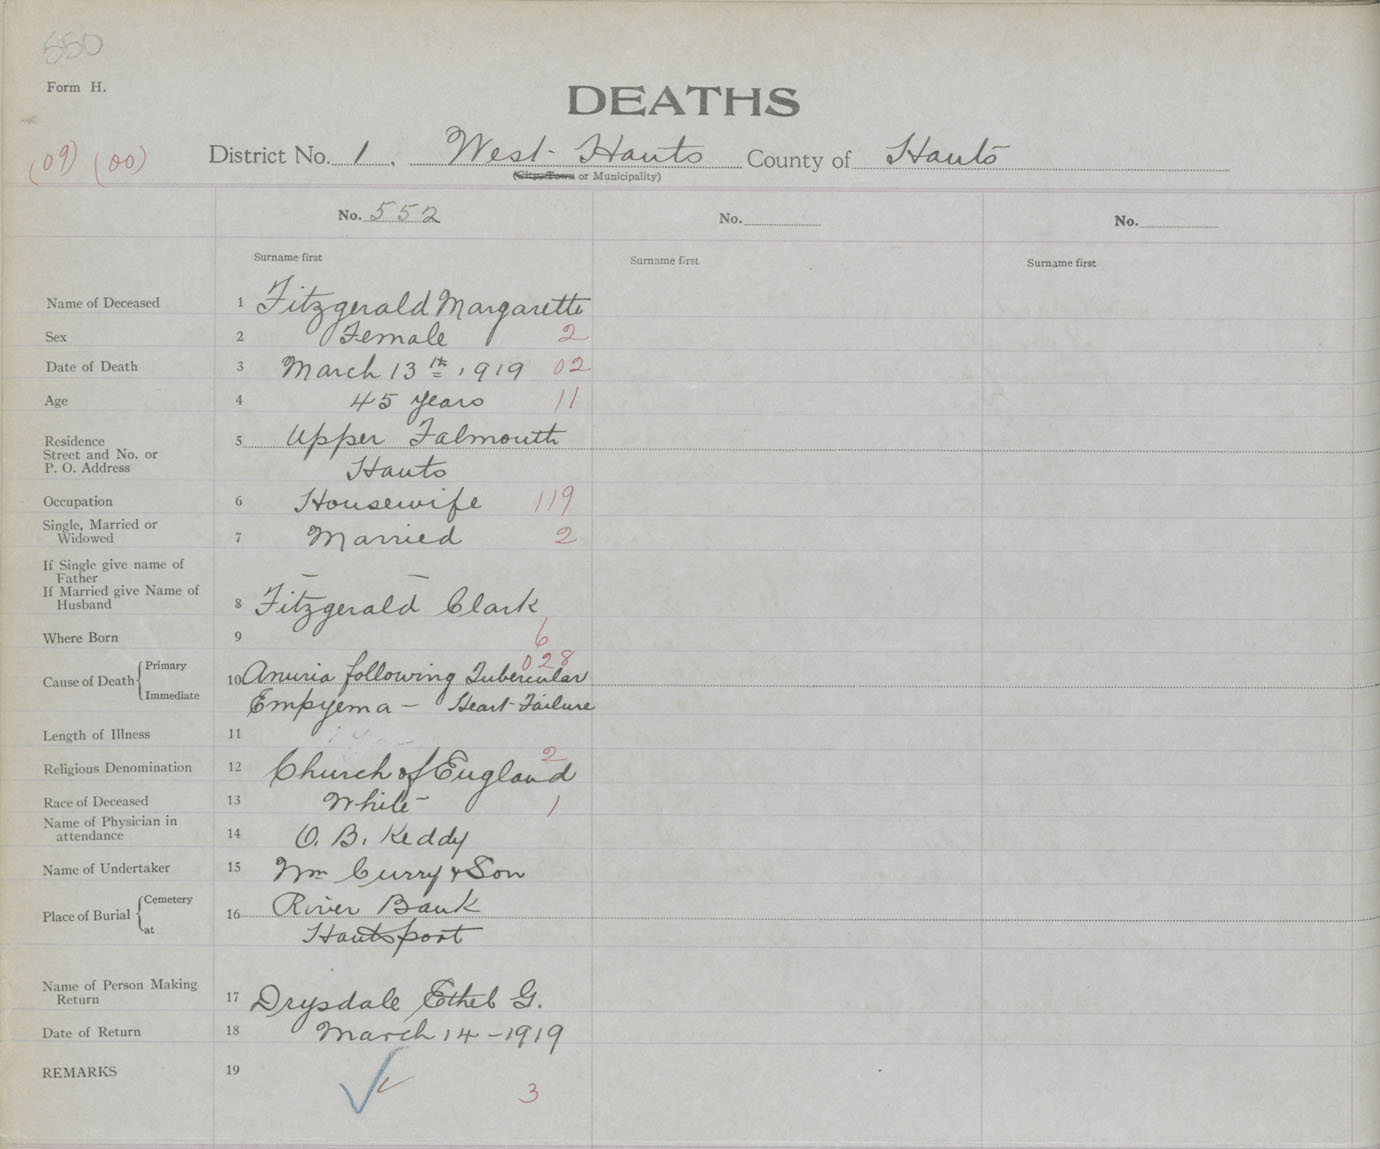 550
Form H.
DEATHS
(09) (00)
District No. 1. West Hants County of Hants
(City, Town or Municipality)
No. 552 No. No.
Surname first Surname first Surname first
Name of Deceased 1 Fitzgerald Margarette
Sex 2 Female 2
Date of Death 3 March 13th 1919 02
Age 4 45 years 11
Residence
Street and No. or
P. O. Address
5 Upper Falmouth
Hants
Occupation 6 Housewife 119
Single, Married or
Widowed
7 Married 2
If Single give name of
Father
If Married give Name of
Husband
8 Fitzgerald Clark
Where Born 9 6
028
Cause of Death { Primary
Immediate
10 Anuria following Tubercular
Empyema – Heart Failure
Length of Illness 11
Religious Denomination 12 Church of England 2
Race of Deceased 13 White 1
Name of Physician in
attendance
14 O. B. Keddy
Name of Undertaker 15 Wm Curry & Son
Place of Burial { Cemetery
at
16 River Bank
Hantsport
Name of Person Making
Return
17 Drysdale Ethel G.
Date of Return 18 March 14 – 1919
REMARKS 19
3